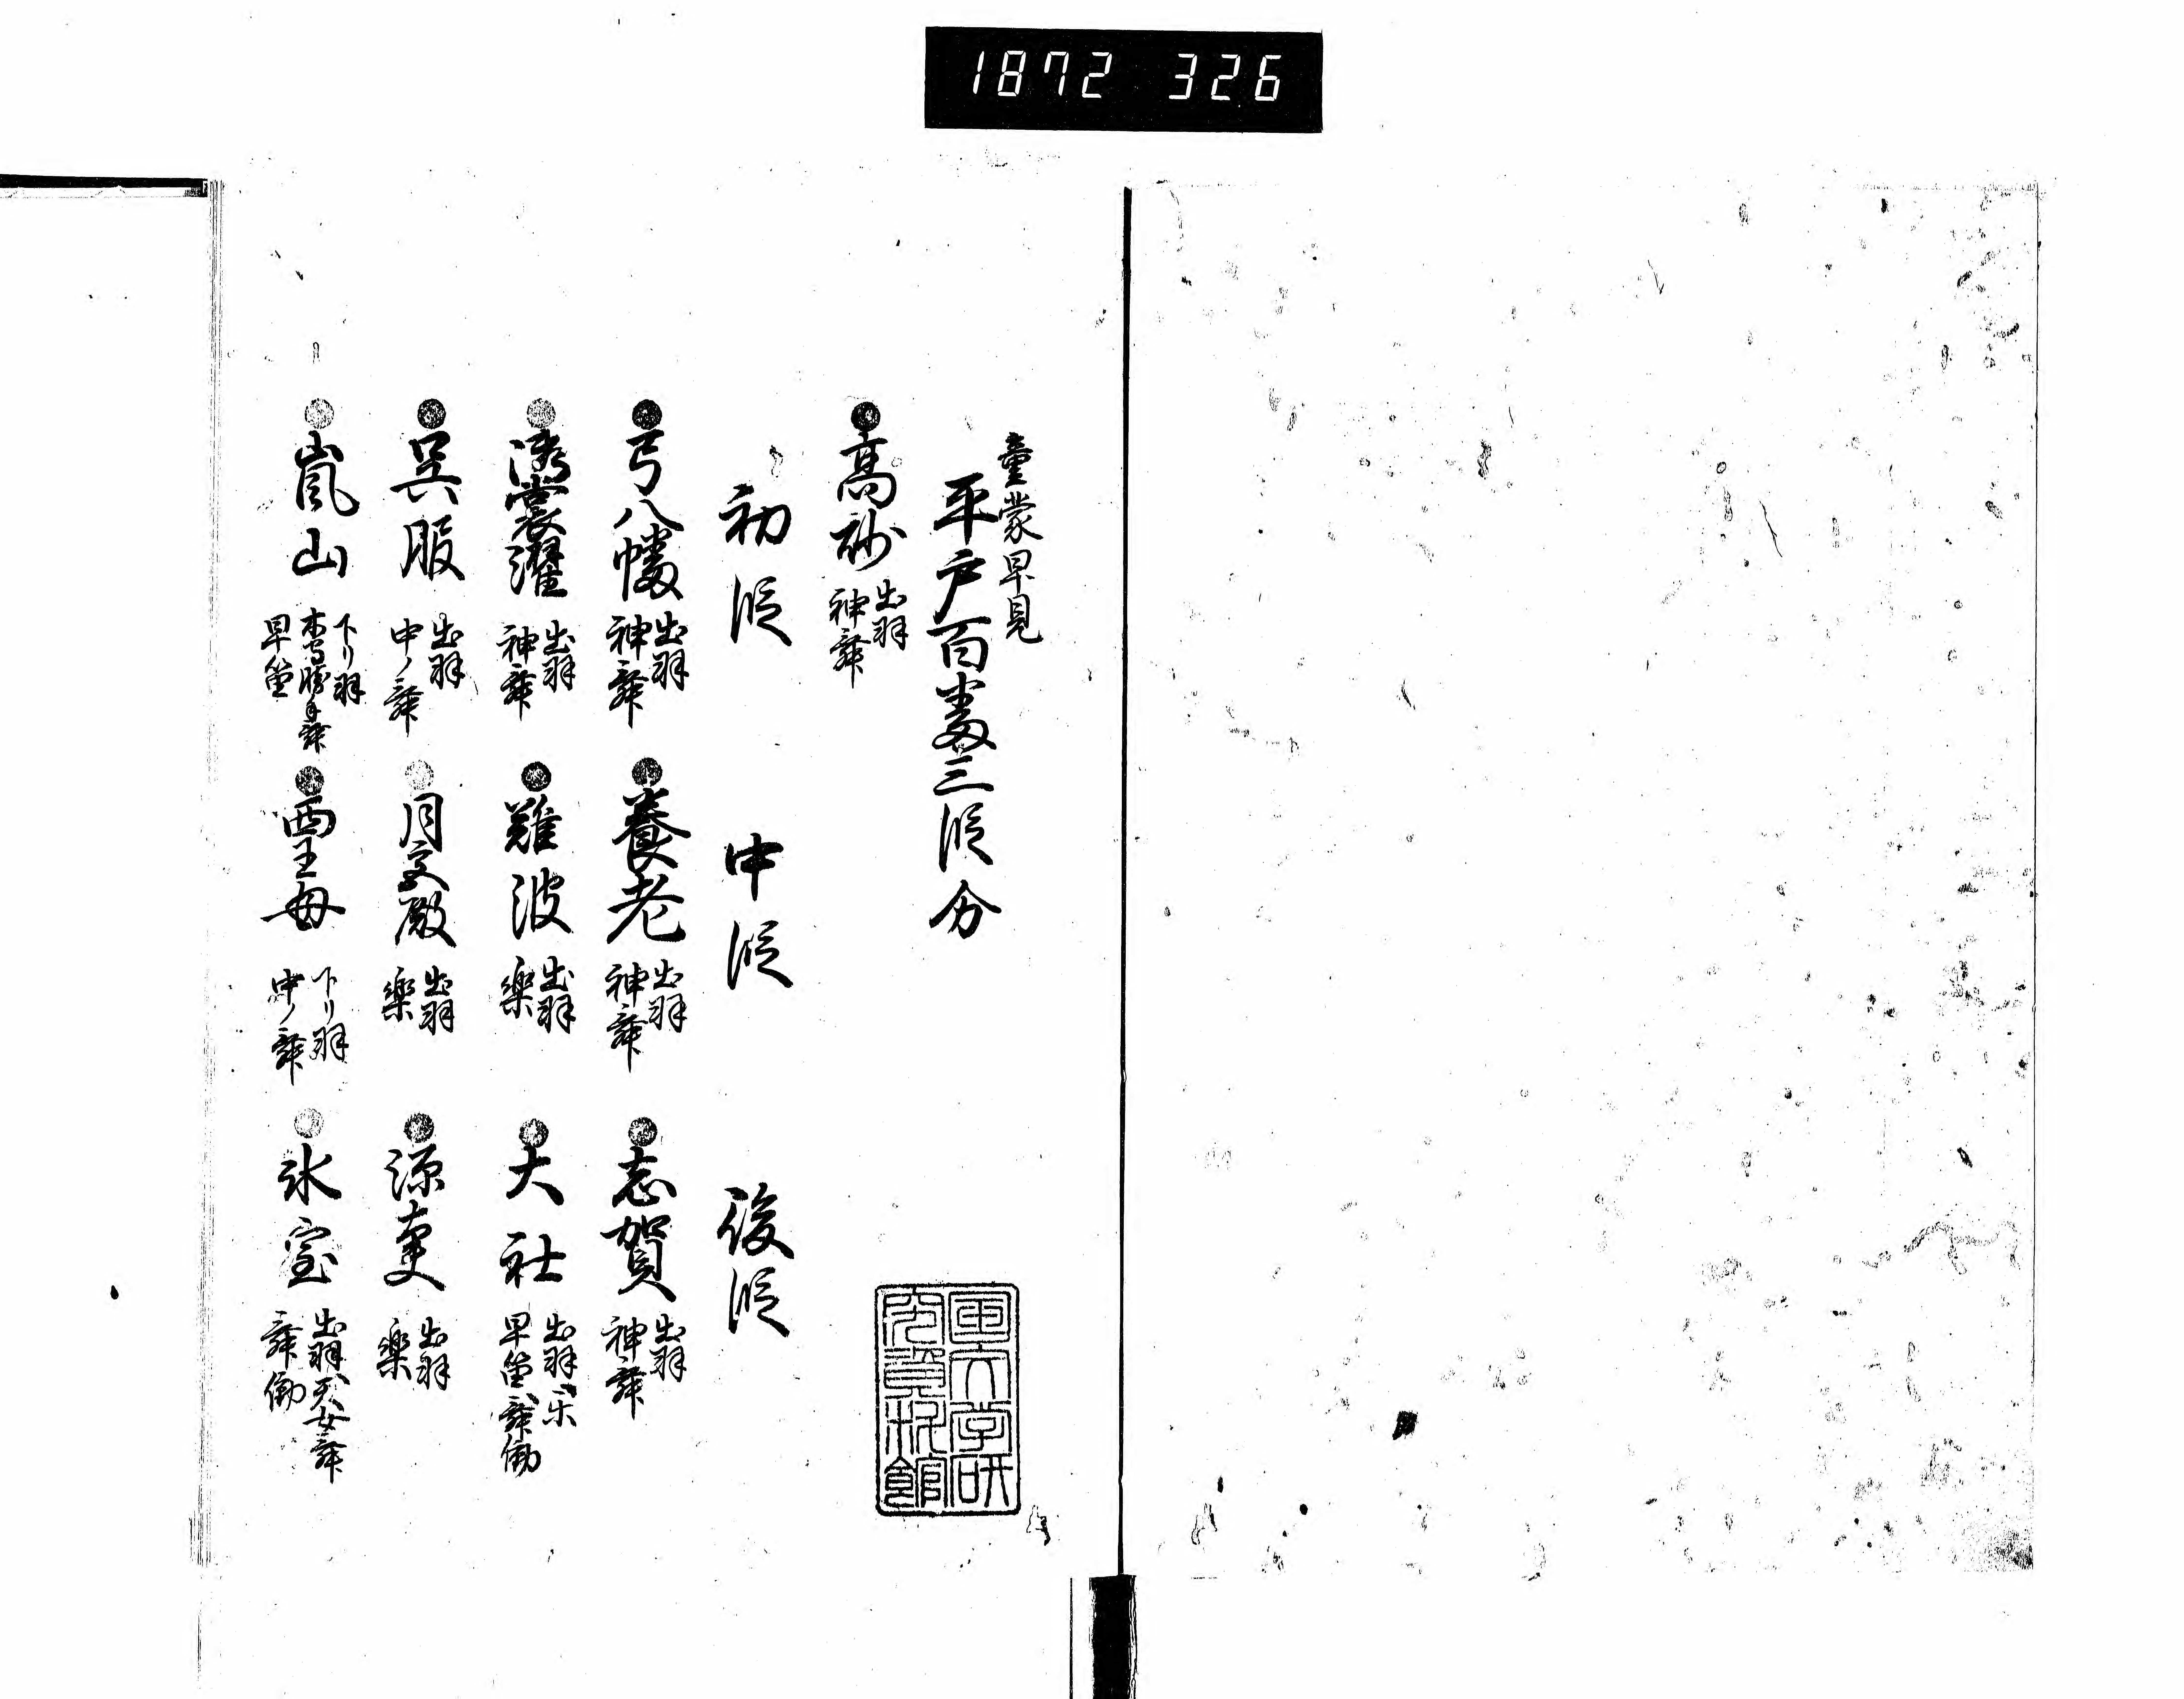 1872 326
童蒙早見
平戸百番三段分
高砂 出羽 神舞
初段 中段 後段
弓八幡 出羽 神舞 養老 出羽 神舞 志賀 出羽 神舞
裳濯 出羽 神舞 難波 出羽 楽 大社 出羽、楽 早笛、舞働
呉服 出羽 中ノ舞 月宮殿 出羽 楽 源太夫 出羽 楽
嵐山 下リ羽 木守勝手舞 早笛 西王母 下リ羽 中ノ舞 氷室 出羽、天女舞 舞働
国文学研
究資料館